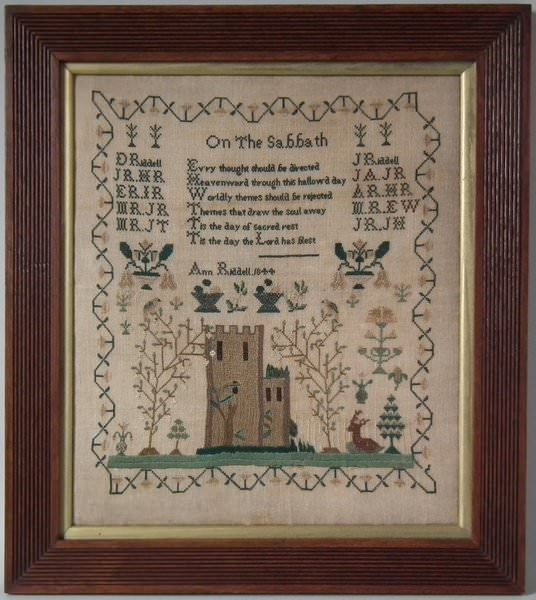 On The Sabbath
D Riddell
JR HR
ER IR
MR JR
MR JT
Evry thought should be directed
Heavenward through this hallow'd day
Worldly themes should be rejected
Themes that draw the soul away
Tis the day of sacred rest
Tis the day the Lord has blest
J Riddell
JA JR
AR HR
MR EW
JR JH
Ann Riddell 1844